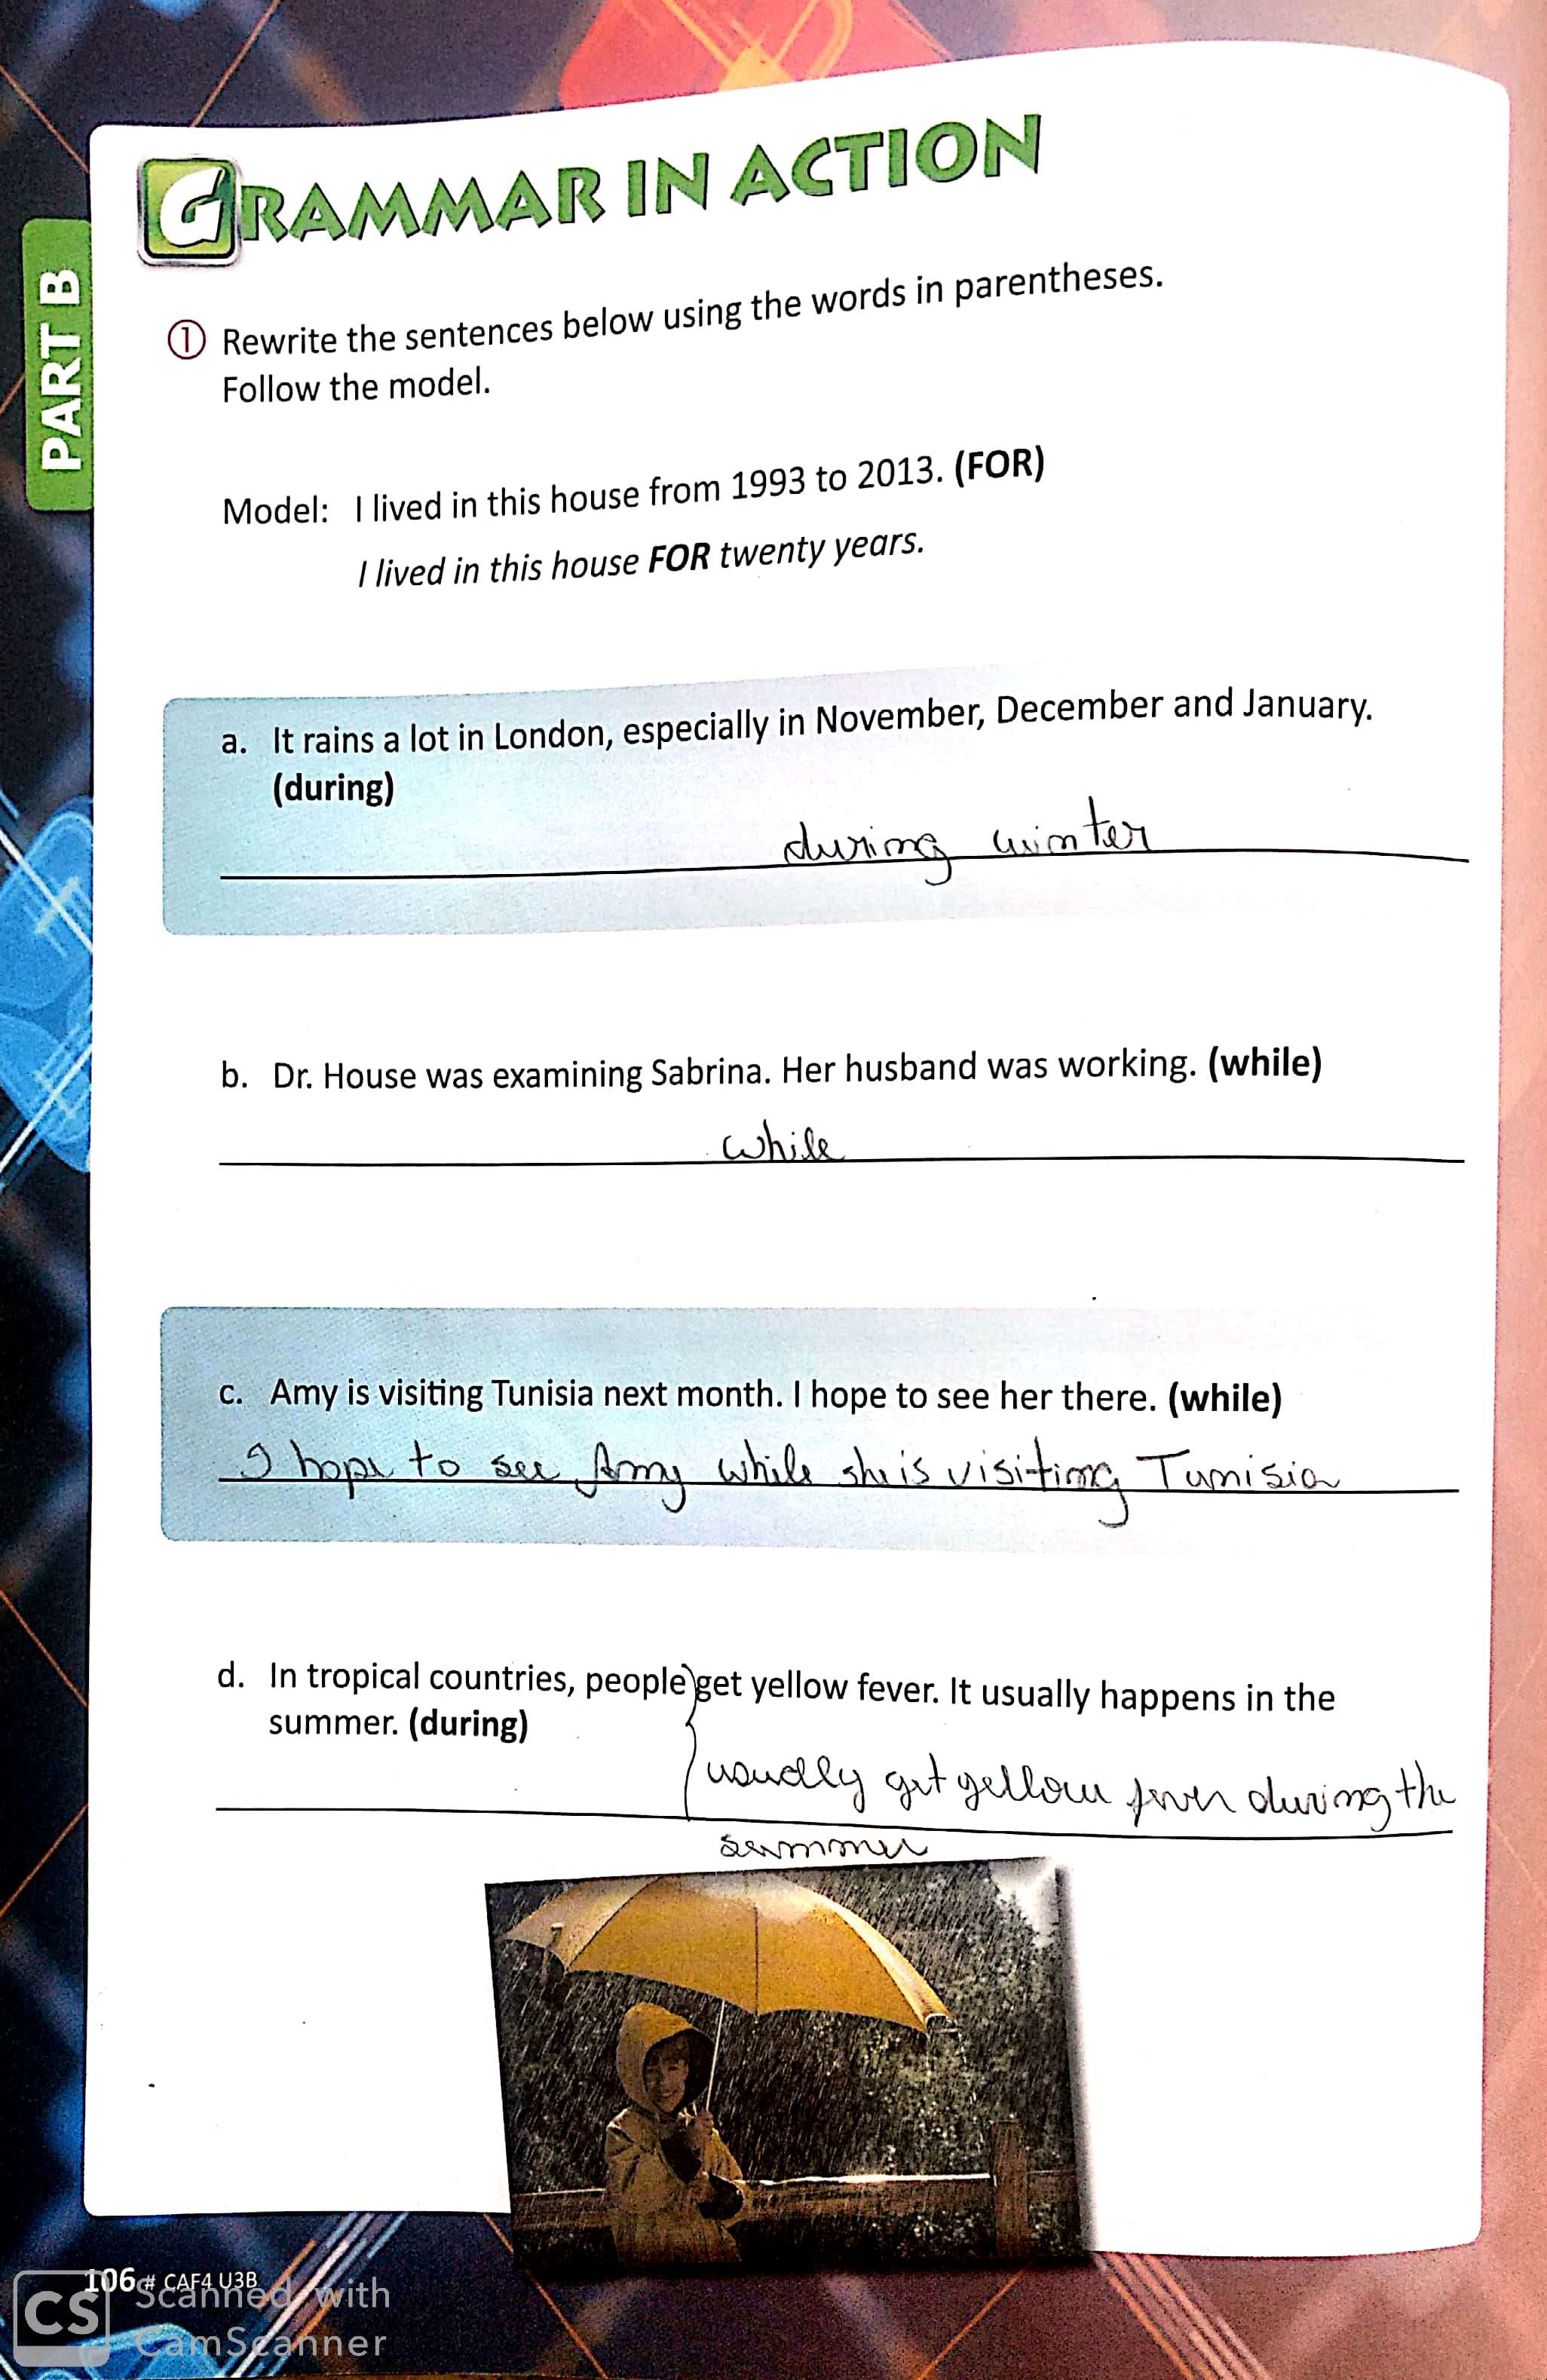 GRAMMAR IN ACTION
PART B
① Rewrite the sentences below using the words in parentheses.
Follow the model.
Model: I lived in this house from 1993 to 2013. (FOR)
I lived in this house FOR twenty years.
a. It rains a lot in London, especially in November, December and January.
(during)
during winter
b. Dr. House was examining Sabrina. Her husband was working. (while)
while
c. Amy is visiting Tunisia next month. I hope to see her there. (while)
I hope to see Amy while she is visiting Tunisia
d. In tropical countries, people get yellow fever. It usually happens in the
summer. (during)
usually get yellow fever during the
summer
106 # CAF4 U3B
CS Scanned with
CamScanner